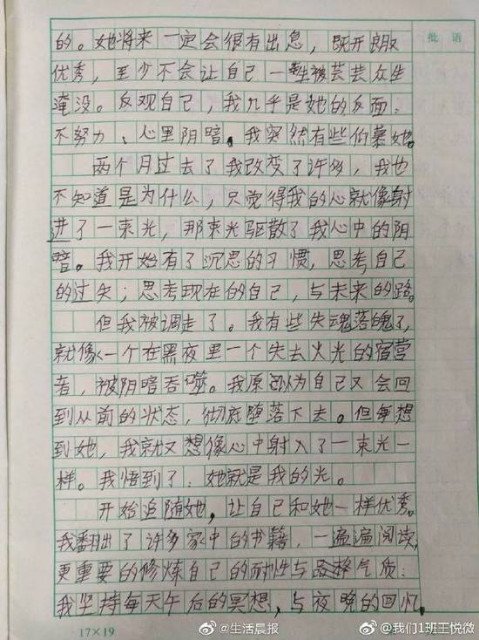 批语
的。她将来一定会很有出息,既开朗
优秀,至少不会让自己一生被芸芸众生
淹没。反观自己,我几乎是她的反面:
不努力、心里阴暗。我突然有些仰慕她。
两个月过去了我改变了许多,我也
不知道是为什么,只觉得我的心就像射
进了一束光,那束光驱散了我心中的阴
暗。我开始有了沉思的习惯,思考自己
的过失;思考现在的自己,与未来的路。
但我被调走了。我有些失魂落魄了,
就像一个在黑夜里一个失去火光的宿营
者,被阴暗吞噬。我原以为自己又会回
到从前的状态,彻底堕落下去。但每想
到她,我就又想像心中射入了一束光一
样。我悟到了,她就是我的光。
开始追随她,让自己和她一样优秀。
我翻出了许多家中的书籍,一遍遍阅读,
更重要的修炼自己的耐性与品格气质:
我坚持每天午后的冥想,与夜晚的回忆,
17×19
@生活晨报
@我们1班王悦微